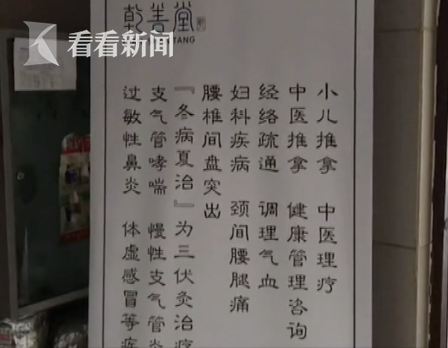 看看新闻
乾善堂
TANG
小儿推拿 中医理疗
中医推拿 健康管理咨询
经络疏通 调理气血
妇科疾病 颈间腰腿痛
腰椎间盘突出
『冬病夏治』为三伏灸治疗
支气管哮喘 慢性支气管炎
过敏性鼻炎 体虚感冒等疾